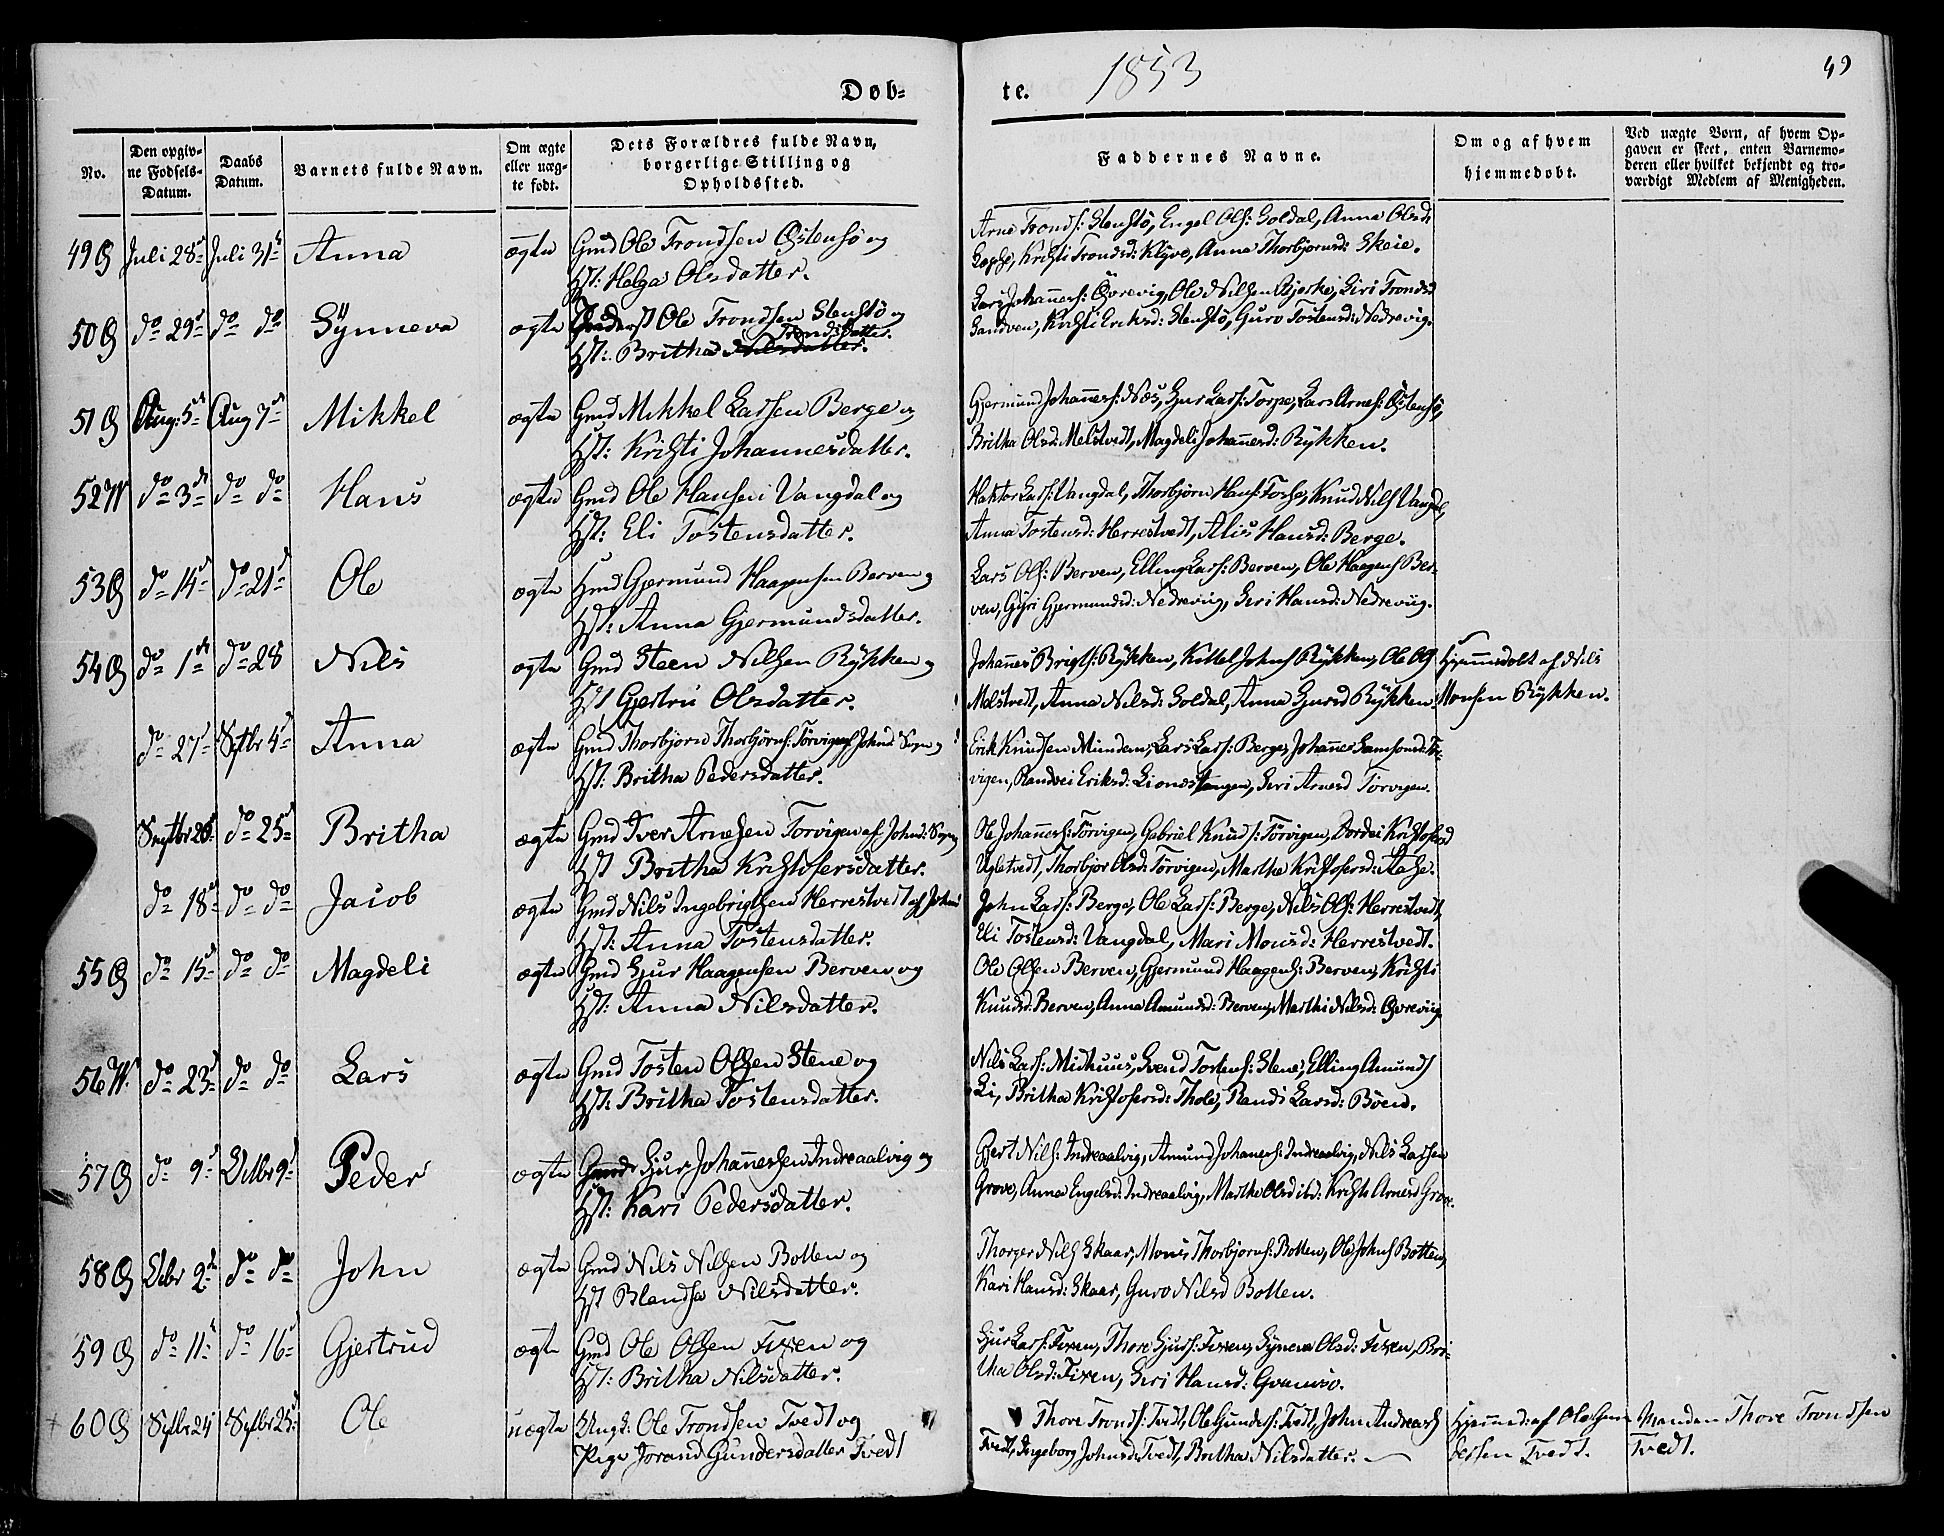 Døb-
te.
1853
49
No.
Den opgiv-
ne Fødsels-
Datum.
Daabs
Datum.
Barnets fulde Navn.
Om ægte
eller uæg-
te født.
Dets Forældres fulde Navn,
borgerlige Stilling og
Opholdssted.
Faddernes Navne.
Om og af hvem
hjemmedøbt.
Ved uægte Børn, af hvem Op-
gaven er skeet, enten Barnemo-
deren eller hvilket bekjendt og tro-
værdigt Medlem af Menigheden.
49 Ø Juli 28 Juli 31 Anna ægte Gmd Ole Trondsen Østensø og
Hst: Helga Olsdatter.
Arne Tronds: Stenstø, Engel Ols: Soldal, Anna Olsd:
Kristi Trondsd: Klyve, Anna Thorbjørnsd: Skeie.
50 Ø do 29 do do Synneva ægte Ole Trondsen Stenstø og
Hst: Britha Nilsdatter. Trondsdatter.
Lars Johannes: Øvrevig, Ole Nilsen Bjerke, Siri Trondsd
Sandven, Kristi Eriksd: Stenstø, Guro Tostensd: Nedrevig.
51 Ø Aug: 5 Aug 7 Mikkel ægte Gmd Mikkel Larsen Berge og
Hst: Kristi Johannesdatter.
Gjermund Johannes: Næs, Sjur Lars: Torpe, Lars Arnes: Østensø,
Britha Olsd: Melstvedt, Magdeli Johannesd: Rykken.
52 W do 3 do do Hans ægte Gmd Ole Hansen Vangdal og
Hst: Eli Tostensdatter.
Lars: Vangdal, Thorbjørn Hans: Knud Nils Vangdal,
Anna Tostensd: Herrestvedt, Alis Hansd: Berge.
53 Ø do 14 do 21 Ole ægte Hmd Gjermund Haagensen Berven og
Hst: Anna Gjermundsdatter.
Lars Ols: Berven, Elling Lars: Berven, Ole Haagens Ber-
ven, Gyri Gjermundsd: Nedrevig, Seri Hansd: Nedrevig.
54 Ø do 1 do 28 Nils ægte Gmd Steen Nilsen Rykken og
Hst Gjertru Olsdatter.
Johannes Brigts: Rykken, Kittel Johns Rykken, Ole Ols
Melstvedt, Anna Nilsd: Soldal, Anna Sjursd Rykken.
Hjemmedøbt af Nils
Monsen Rykken.
do 27 Septbr 4 Anna ægte Gmd Thorbjørn Thorbjørns: Torvigen af Johnd: Sogn og
Hst: Britha Pedersdatter.
Erik Knudsen Mundem, Lars Lars: Berge, Johannes Samsons: Tor-
vigen, Randvei Eriksd: Seri Arnesd Torvigen.
Septbr do 25 Britha ægte Gmd Iver Arnesen Torvigen af Johnd: Sogn
Hst Britha Kristofersdatter.
Ole Johannes: Torvigen, Gabriel Knuds: Torvigen, Dordei Kristofersd
Thorbjør Olsd: Torvigen, Marthe Kristofersd:
do 18 do do Jacob ægte Gmd Nils Ingebrigtsen Herrestvedt af Johnd
Hst: Anna Tostensdatter.
John Lars: Berge, Ole Lars: Berge, Nils Ols: Herrestvedt,
Eli Tostensd: Vangdal, Mari Monsd: Herrestvedt.
55 Ø do 15 do do Magdeli ægte Gmd Sjur Haagensen Berven og
Hst: Anna Nilsdatter.
Ole Olsen Berven, Gjermund Haagens: Berven, Kristi
Knudsd: Berven, Anna Amundsd: Berven, Marthi Nilsd: Øvrevig
56 W. do 23 do do Lars ægte Gmd Tosten Olsen Stene og
Hst: Britha Tostensdatter.
Nils Lars: Midhuus, Svend Tostens: Stene, Elling Amunds
Li, Britha Kristofersd: Tholo, Randi Larsd: Bøen.
57 Ø do 9 Octbr 9 Peder ægte Gmd Sjur Johannesen Indreaalvig og
Hst: Kari Pedersdatter.
Gjert Nils: Indreaalvig, Amund Johannes: Indreaalvig, Nils Larsen
Grove, Anna Engelsd: Indreaalvig, Marthe Olsd ibd: Kristi Arnesd Grove.
58 Ø Octbr 2 do do John ægte Gmd Nils Nilsen Botten og
Hst Blandsa Nilsdatter.
Thorger Nils Skaar, Mons Thorbjørns: Botten, Ole Johns Botten,
Kari Hansd: Skaar, Guro Nilsd Botten.
59 Ø do 11 do 16 Gjertrud ægte Gmd Ole Olsen Fixen og
Hst: Britha Nilsdatter.
Sjur Lars: Fixen, Thore Sjurs: Fixen, Synneva Olsd: Fixen, Bri-
tha Olsd: Fixen, Seri Hansd:
60 Ø Septbr 24 Septbr 25 Ole uægte Ungk: Ole Trondsen Tvedt og
Pige Jorand Gundersdatter Tvedt
Thore Tronds: Tvedt, Ole Gunders: Tvedt, John Andreas
Tvedt, Ingeborg Johnsd: Tvedt, Britha Nilsdatter.
Hjemmed: af Ole
Tvedt.
Manden Thore Trondsen
Tvedt.